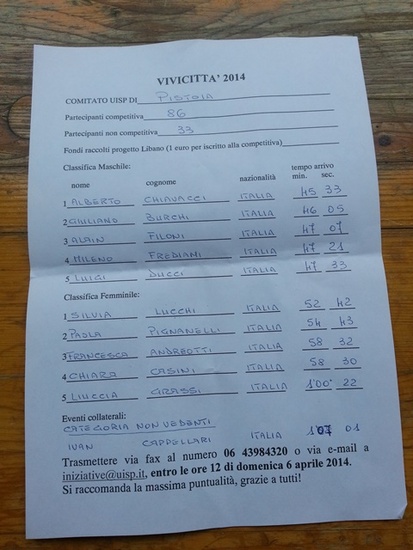 VIVICITTA' 2014
COMITATO UISP DI PISTOIA
Partecipanti competitiva 86
Partecipanti non competitiva 33
Fondi raccolti progetto Libano (1 euro per iscritto alla competitiva)
Classifica Maschile: tempo arrivo
nome cognome nazionalità min. sec.
1 ALBERTO CHIAVACCI ITALIA 45 33
2 GIULIANO BURCHI ITALIA 46 05
3 ALAIN FILONI ITALIA 47 07
4 MILENO FREDIANI ITALIA 47 21
5 LUIGI DUCCI ITALIA 47 33
Classifica Femminile:
1 SILVIA LUCCHI ITALIA 52 42
2 PAOLA PIGNANELLI ITALIA 54 43
3 FRANCESCA ANDREOTTI ITALIA 58 32
4 CHIARA CASINI ITALIA 58 30
5 LIUCCIA GRASSI ITALIA 1'00" 22
Eventi collaterali:
CATEGORIA NON VEDENTI
IVAN CAPPELLARI ITALIA 1'07 01
Trasmettere via fax al numero 06 43984320 o via e-mail a
iniziative@uisp.it, entro le ore 12 di domenica 6 aprile 2014.
Si raccomanda la massima puntualità, grazie a tutti!